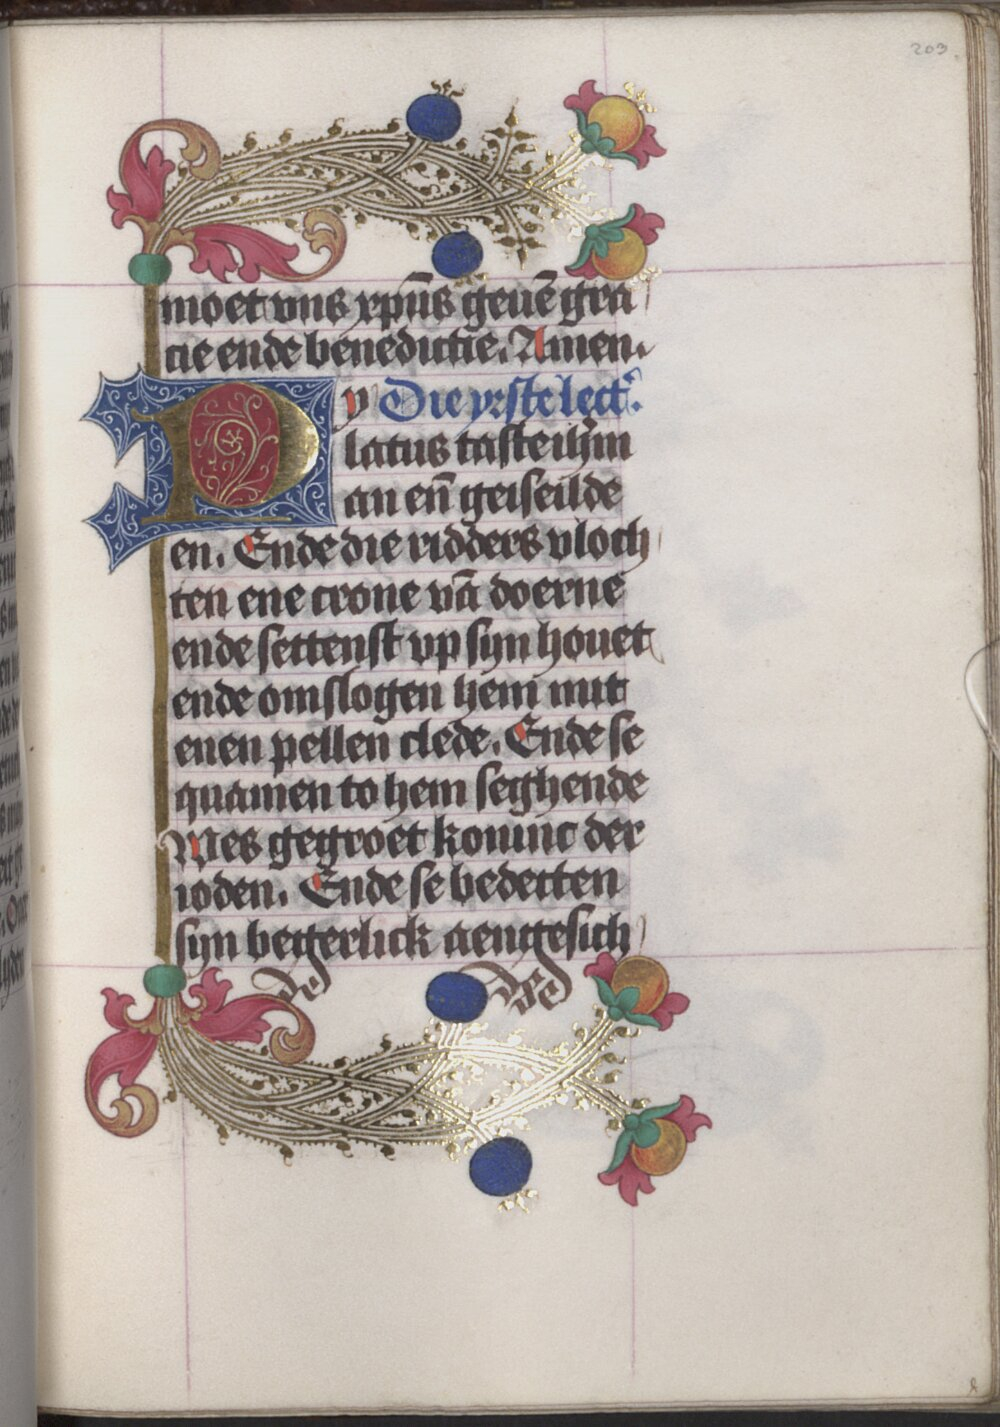 203
moet vns xpūs geuē gra
cie ende benedictie. Amen.
Py Die yrste lect.
latus taste ihm
an en̄ geiseilde
en. Ende die ridders vloch
ten ene crone vā doerne
ende settenst vp syn houet
ende omslogen hem mit
enen pellen clede. Ende se
quamen to hem seghende
Wes gegroet koninc der
ioden. Ende se bedecten
syn begerlick aengesich